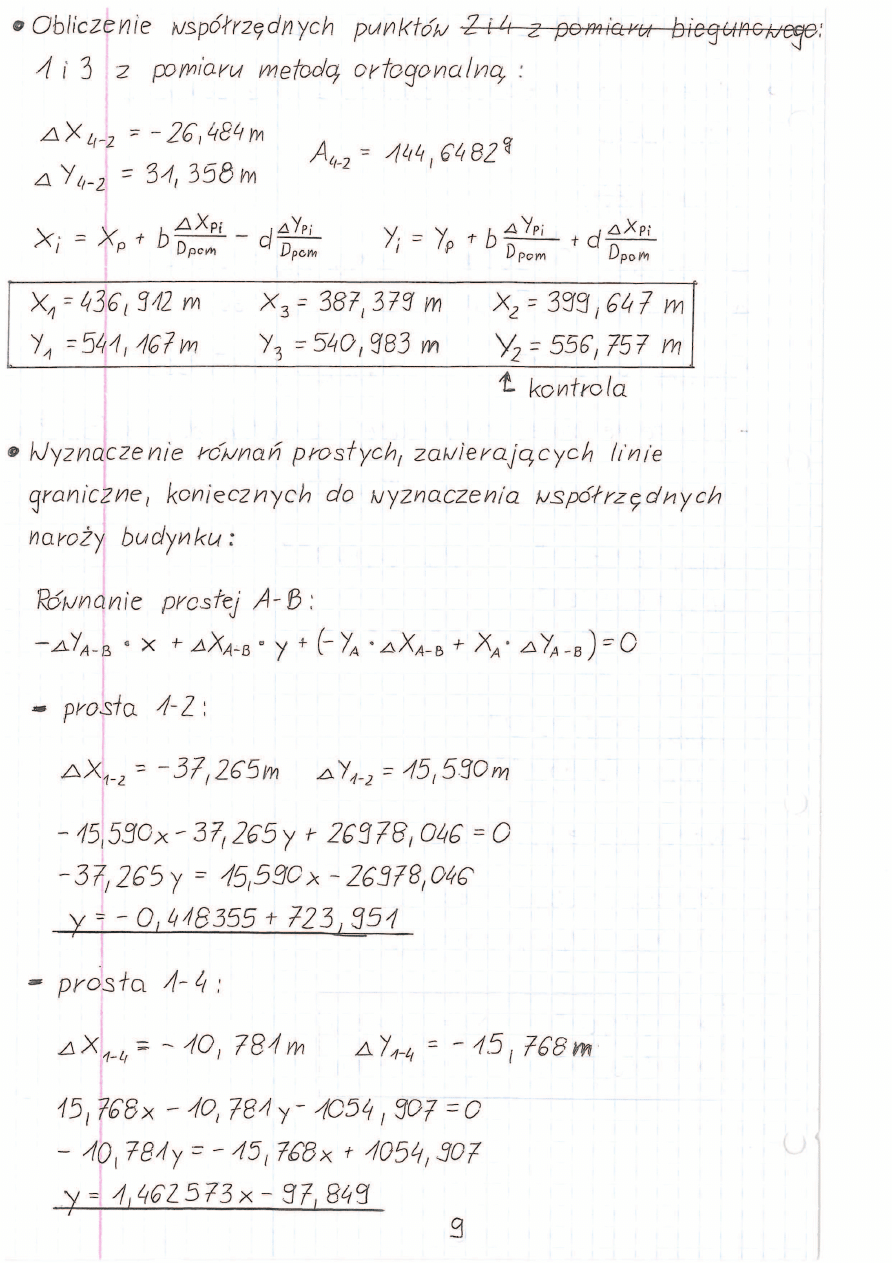 • Obliczenie współrzędnych punktów 2 i 4 z pomiaru biegunowego:
1 i 3 z pomiaru metodą ortogonalną :
ΔX₄₋₂ = -26,484 m
A₄₋₂ = 144,6482ᵍ
ΔY₄₋₂ = 31,358 m
Xᵢ = Xₚ + b ΔXₚᵢ/Dₚₒₘ - d ΔYₚᵢ/Dₚₒₘ Yᵢ = Yₚ + b ΔYₚᵢ/Dₚₒₘ + d ΔXₚᵢ/Dₚₒₘ
X₁ = 436,912 m X₃ = 387,379 m X₂ = 399,647 m
Y₁ = 541,167 m Y₃ = 540,983 m Y₂ = 556,757 m
↑ kontrola
• Wyznaczenie równań prostych, zawierających linie
graniczne, koniecznych do wyznaczenia współrzędnych
naroży budynku:
Równanie prostej A-B:
-ΔY_A-B · x + ΔX_A-B · y + (-Y_A · ΔX_A-B + X_A · ΔY_A-B) = 0
- prosta 1-2:
ΔX₁₋₂ = -37,265 m ΔY₁₋₂ = 15,590 m
-15,590x - 37,265y + 26978,046 = 0
-37,265y = 15,590x - 26978,046
y = -0,418355 + 723,951
- prosta 1-4:
ΔX₁₋₄ = -10,781 m ΔY₁₋₄ = -15,768 m
15,768x - 10,781y - 1054,907 = 0
-10,781y = -15,768x + 1054,907
y = 1,462573x - 97,849
9